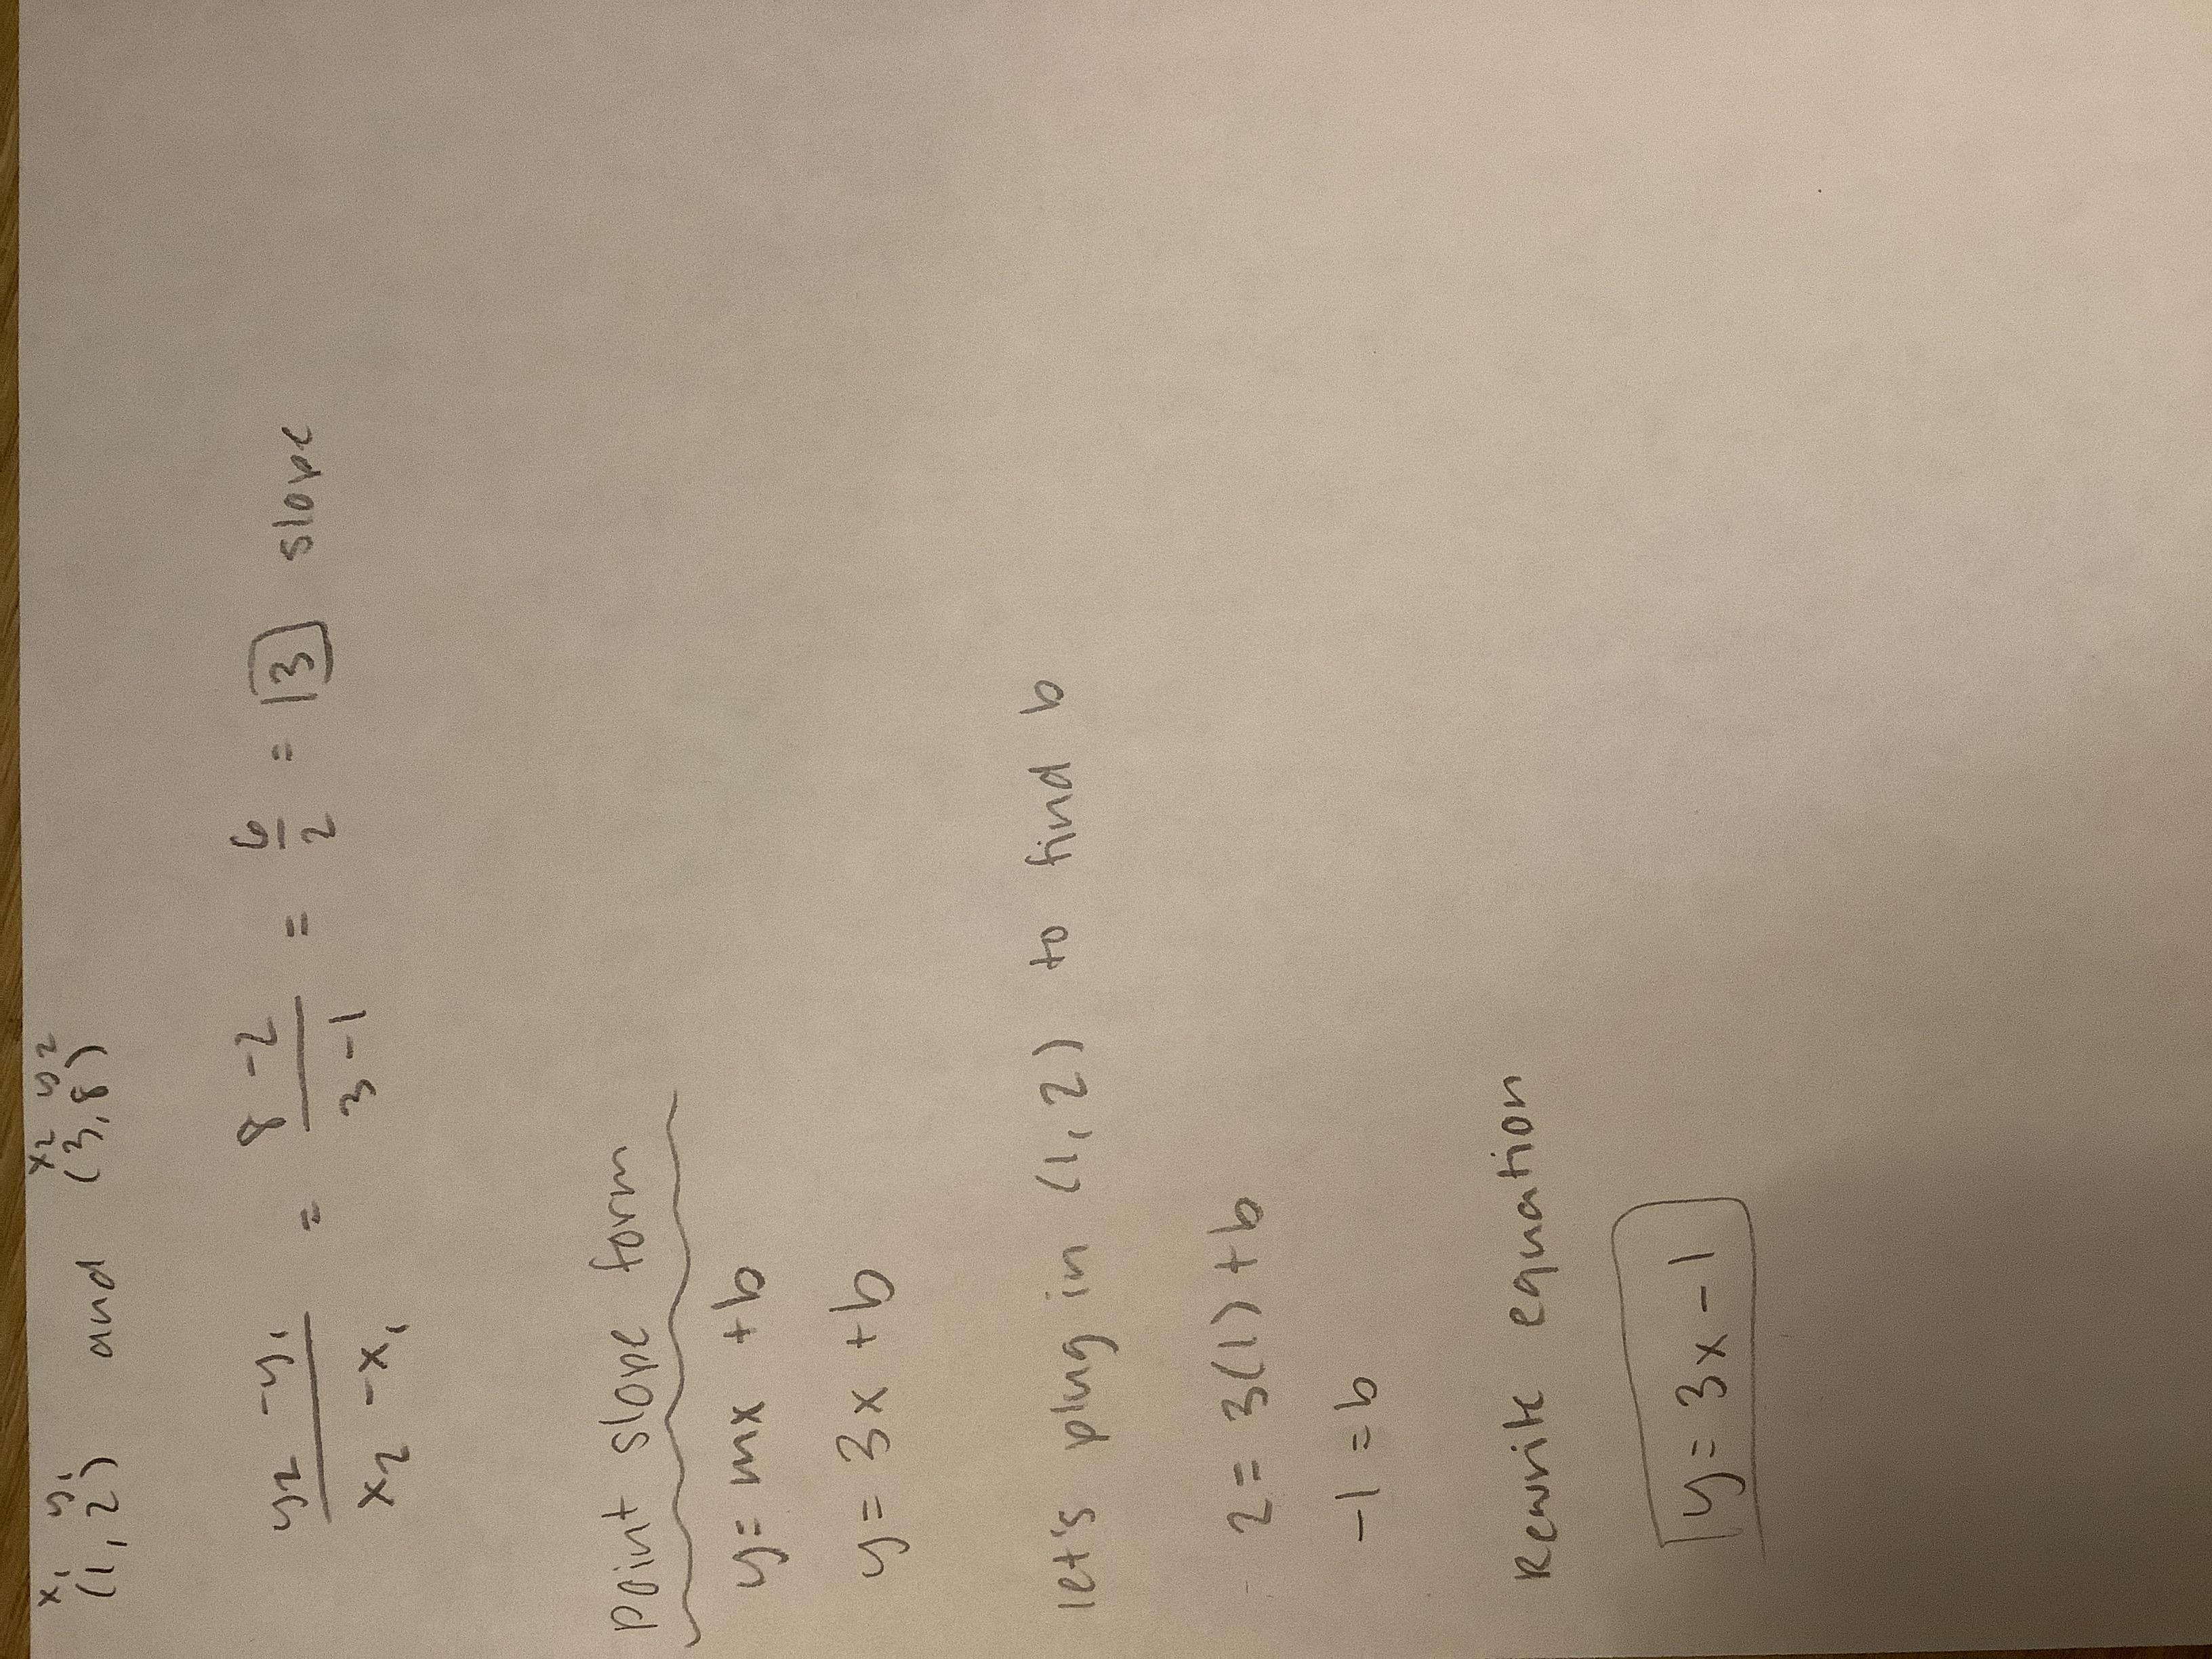 x₁ y₁ x₂ y₂
(1, 2) and (3, 8)
y₂ - y₁ / x₂ - x₁ = 8 - 2 / 3 - 1 = 6/2 = 3 slope
point slope form
y = mx + b
y = 3x + b
let's plug in (1, 2) to find b
2 = 3(1) + b
-1 = b
Rewrite equation
y = 3x - 1